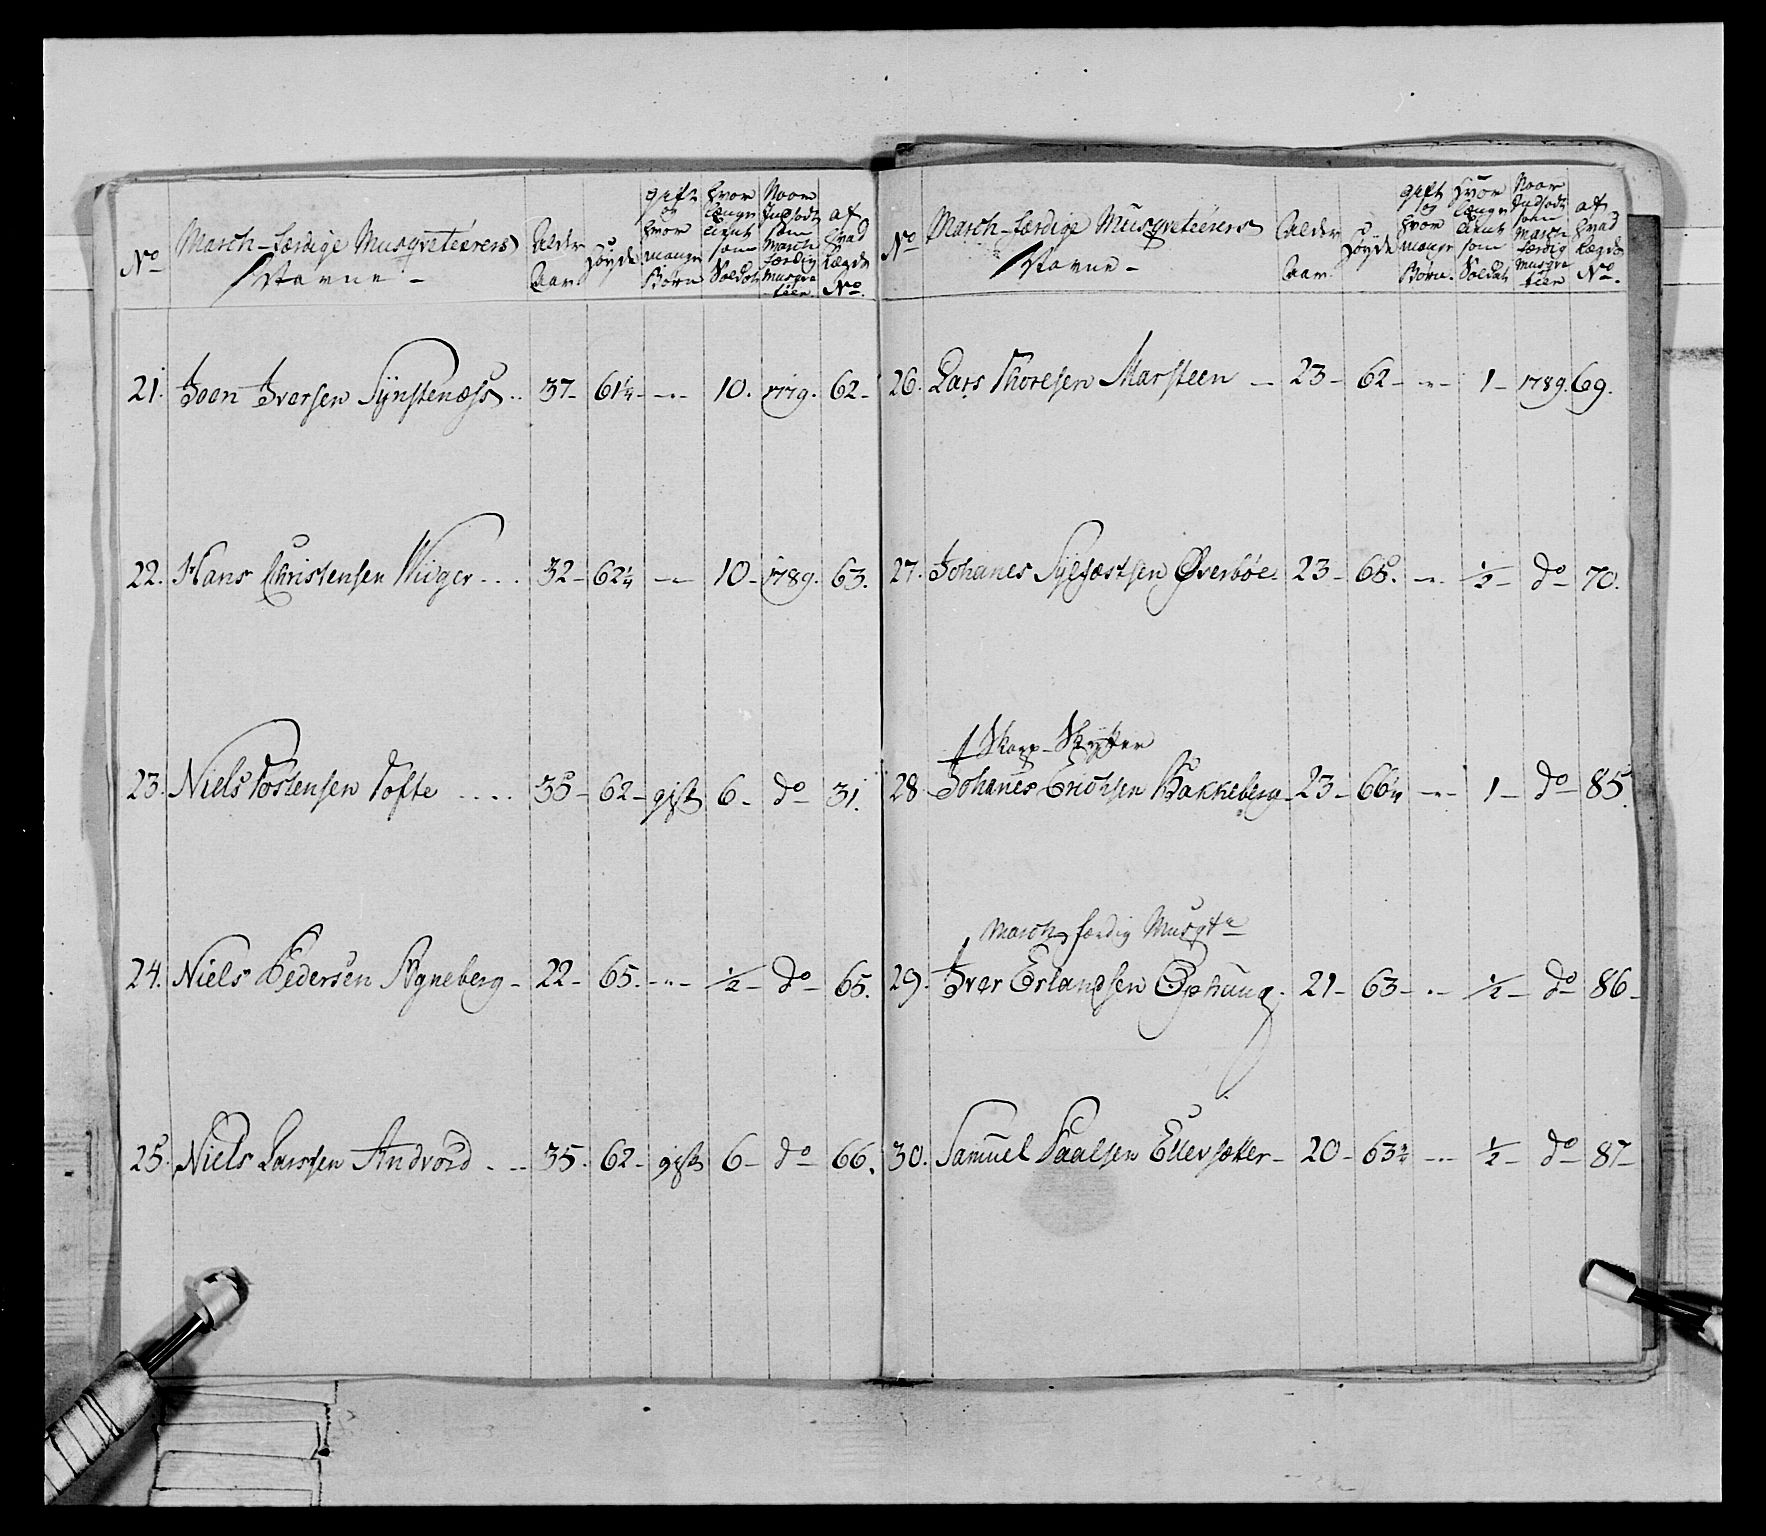 No March-færdige Musqveteerers Navne - Alder Aar Höyde gift og hvor mange Börn hvor længe tient som Soldat Naar Indsadt som March færdig Musqve-teer af hvad Lægds No.
21. Joen Iversen Synstenæss .. 37- 61¼- -..- 10. 1779. 62-
22. Hans Christensen Wiiger ... 32- 62¼ -..- 10- 1789. 63.
23. Niels Tostensen Tofte .... 35- 62- gift 6- do 31.
24. Niels Pedersen Skgneberg- 22- 65. -..- ½- do- 65.
25. Niels Larssen Andvord ... 35. 62- gift 6- do- 66.
No March-færdige Musqveteerers Navne - Alder Aar Höyde gift og hvor mange Börn. hvor længe tient som Soldat Naar Indsadt som March færdig Musqve-teer af hvad Lægds No.
26. Lars Thoresen Marsteen -- 23- 62- -..- 1- 1789. 69.
27. Johanes Sylfæstsen Øverböe 23- 65. -..- ½- do- 70.
Skarp-Skytter
28 Johanes Erichsen Bakkeberg- 23- 66¼ -..- 1- do- 85.
March færdig Musqt
29. Iver Erlandsen Ophuug. 21- 63- -..- ½- do- 86-
30. Samuel Paalsen Ellevsætter- 20- 63¾ -..- ½- do- 87-